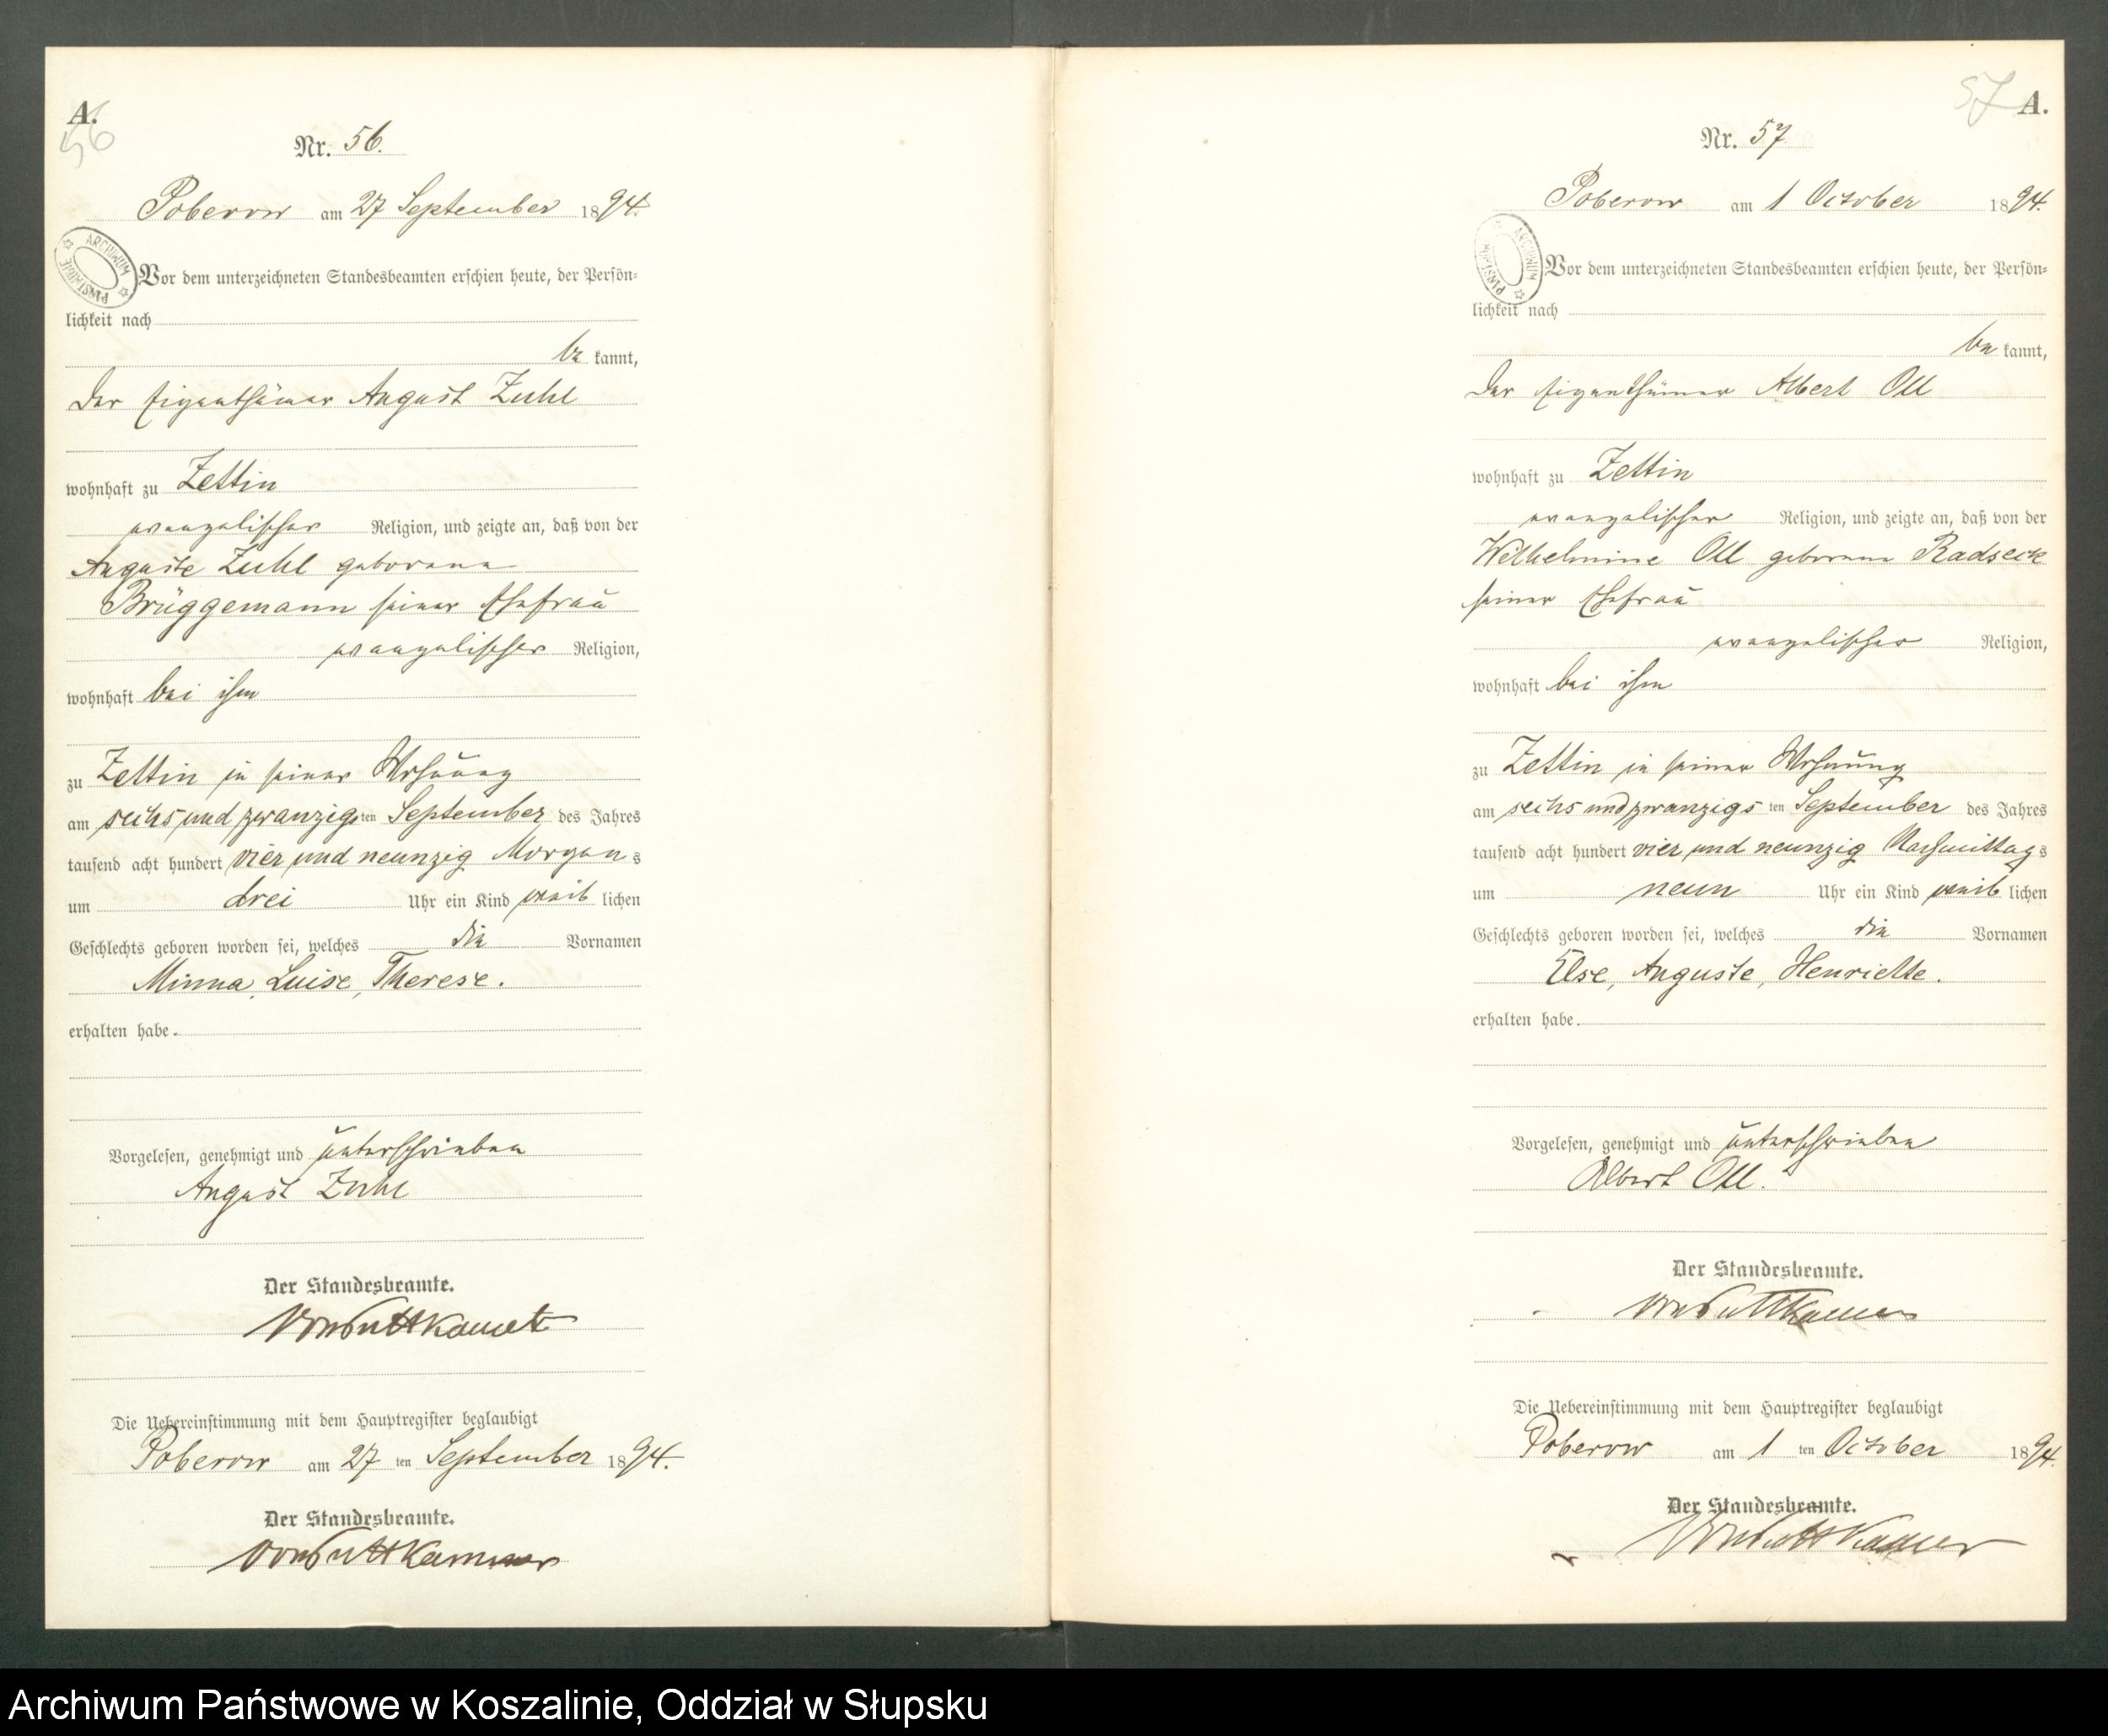 A.
56
Nr. 56.
Poberow am 27 September 1894.
ARCHIWUM PAŃSTWOWE
Vor dem unterzeichneten Standesbeamten erschien heute, der Persön-
lichkeit nach
be kannt,
der Eigenthümer August Zuhl
wohnhaft zu Zettin
evangelischer Religion, und zeigte an, daß von der
Auguste Zuhl geborene
Brüggemann seiner Ehefrau
evangelischer Religion,
wohnhaft bei ihm
zu Zettin in seiner Wohnung
am sechs und zwanzigs ten September des Jahres
tausend acht hundert vier und neunzig Morgens
um drei Uhr ein Kind weib lichen
Geschlechts geboren worden sei, welches die Vornamen
Minna, Luise, Therese.
erhalten habe.
Vorgelesen, genehmigt und unterschrieben
August Zuhl
Der Standesbeamte.
von Puttkamer
Die Uebereinstimmung mit dem Hauptregister beglaubigt
Poberow am 27 ten September 1894.
Der Standesbeamte.
von Puttkamer
57 A.
Nr. 57
Poberow am 1 October 1894.
ARCHIWUM PAŃSTWOWE
Vor dem unterzeichneten Standesbeamten erschien heute, der Persön-
lichkeit nach
be kannt,
der Eigenthümer Albert Ott
wohnhaft zu Zettin
evangelischer Religion, und zeigte an, daß von der
Wilhelmine Ott geborene Radseck
seiner Ehefrau
evangelischer Religion,
wohnhaft bei ihm
zu Zettin in seiner Wohnung
am sechs und zwanzigs ten September des Jahres
tausend acht hundert vier und neunzig Nachmittags
um neun Uhr ein Kind weib lichen
Geschlechts geboren worden sei, welches die Vornamen
Else, Auguste, Henriette.
erhalten habe.
Vorgelesen, genehmigt und unterschrieben
Albert Ott.
Der Standesbeamte.
von Puttkamer
Die Uebereinstimmung mit dem Hauptregister beglaubigt
Poberow am 1 ten October 1894.
Der Standesbeamte.
von Puttkamer
Archiwum Państwowe w Koszalinie, Oddział w Słupsku